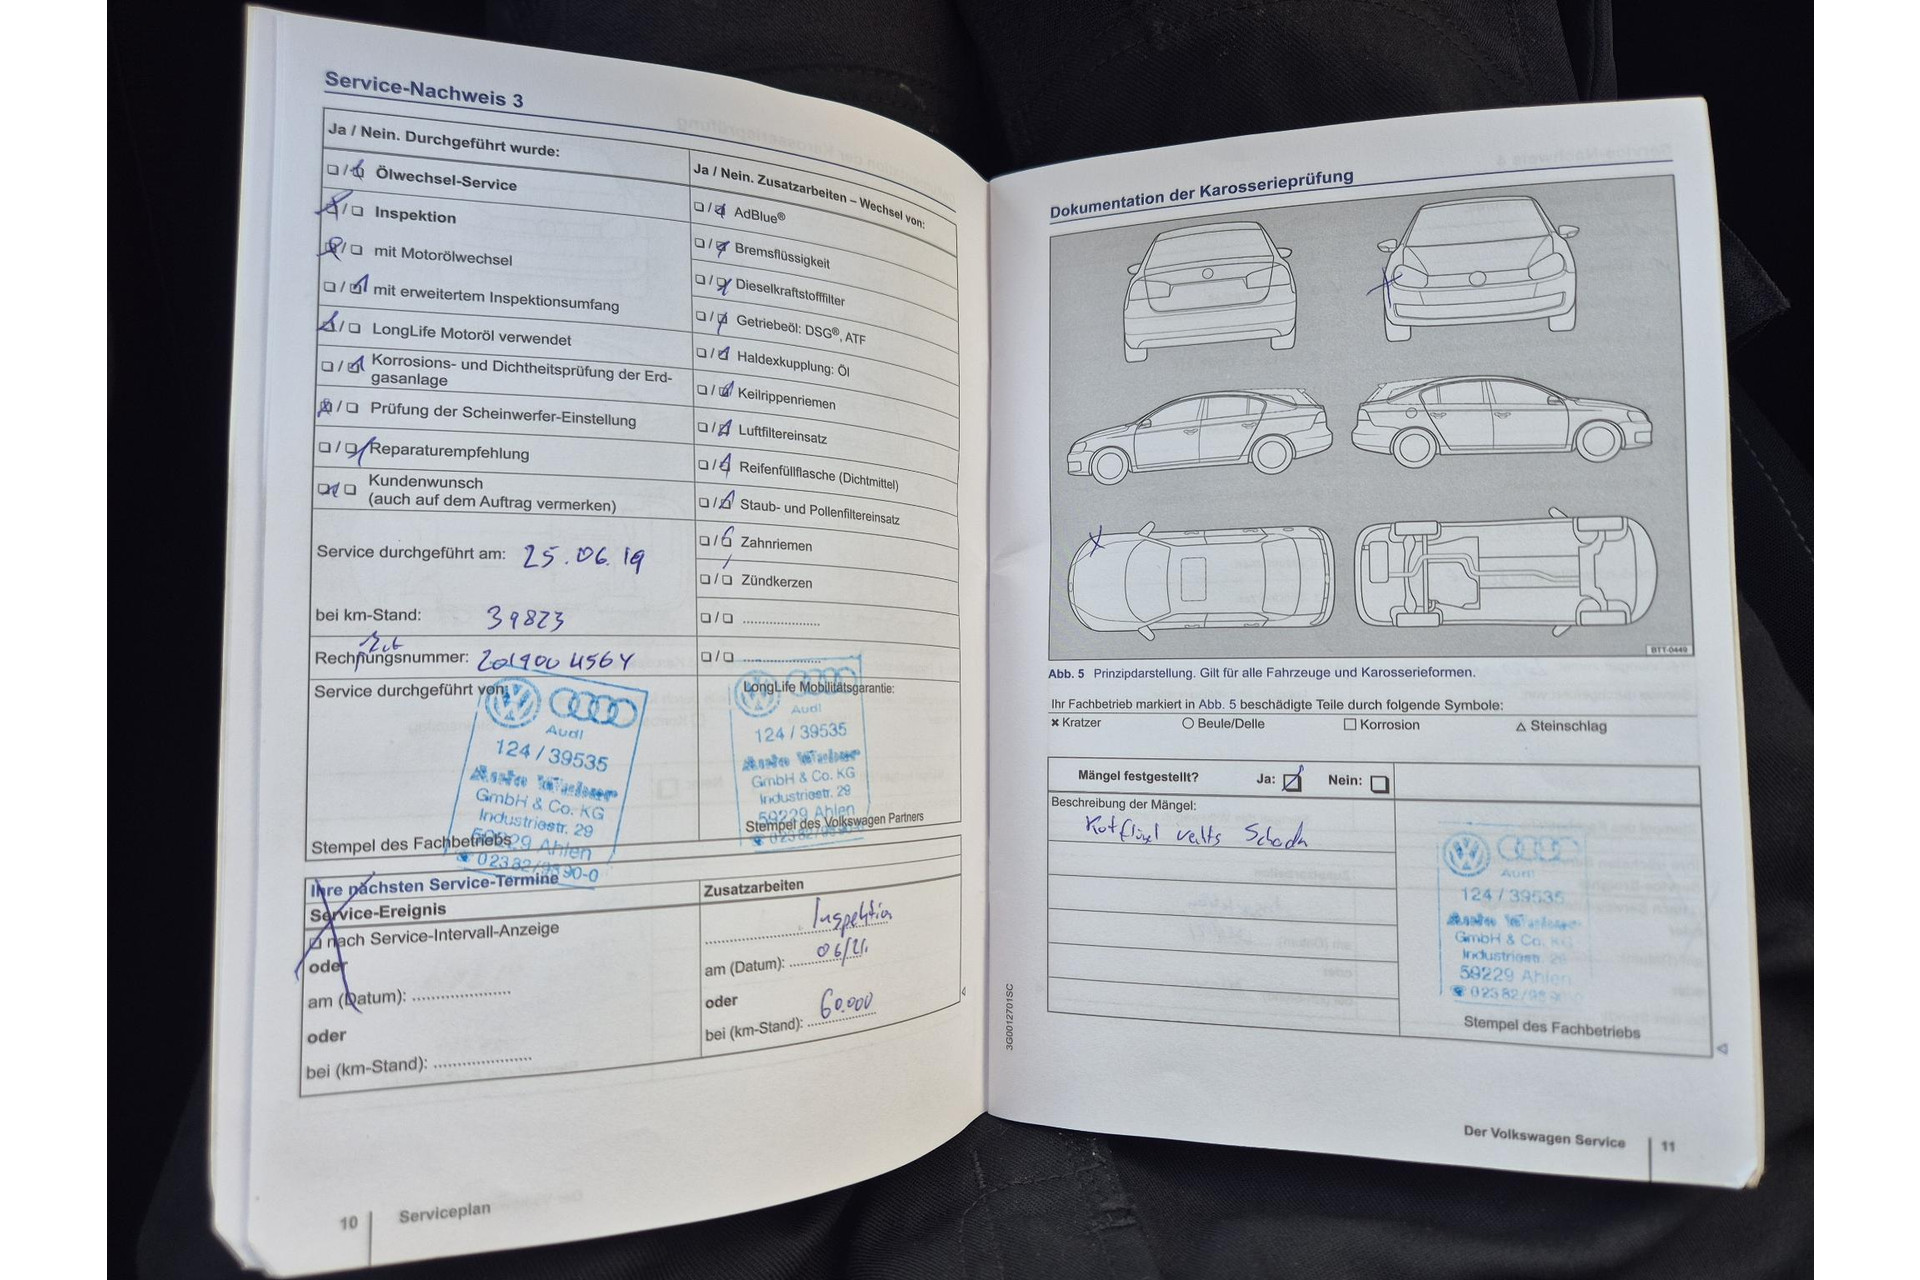 Service-Nachweis 3
Ja / Nein. Durchgeführt wurde:
Ölwechsel-Service
Inspektion
mit Motorölwechsel
mit erweitertem Inspektionsumfang
LongLife Motoröl verwendet
Korrosions- und Dichtheitsprüfung der Erd-
gasanlage
Prüfung der Scheinwerfer-Einstellung
Reparaturempfehlung
Kundenwunsch
(auch auf dem Auftrag vermerken)
Service durchgeführt am: 25.06.19
bei km-Stand: 39823
Rechnungsnummer: 201900 4564
Service durchgeführt von:
Audi
124 / 39535
GmbH & Co. KG
Industriestr. 29
59229 Ahlen
02382/9890-0
Stempel des Fachbetriebs
Ja / Nein. Zusatzarbeiten – Wechsel von:
AdBlue®
Bremsflüssigkeit
Dieselkraftstofffilter
Getriebeöl: DSG®, ATF
Haldexkupplung: Öl
Keilrippenriemen
Luftfiltereinsatz
Reifenfüllflasche (Dichtmittel)
Staub- und Pollenfiltereinsatz
Zahnriemen
Zündkerzen
LongLife Mobilitätsgarantie:
Audi
124 / 39535
GmbH & Co. KG
Industriestr. 29
59229 Ahlen
Stempel des Volkswagen Partners
Ihre nächsten Service-Termine
Service-Ereignis
nach Service-Intervall-Anzeige
oder
am (Datum):
oder
bei (km-Stand):
Zusatzarbeiten
Inspektion
am (Datum): 06/21.
oder
bei (km-Stand): 60.000
10 Serviceplan
Dokumentation der Karosserieprüfung
BTT-0449
Abb. 5 Prinzipdarstellung. Gilt für alle Fahrzeuge und Karosserieformen.
Ihr Fachbetrieb markiert in Abb. 5 beschädigte Teile durch folgende Symbole:
Kratzer Beule/Delle Korrosion Steinschlag
Mängel festgestellt? Ja: Nein:
Beschreibung der Mängel:
Audi
124 / 39535
GmbH & Co. KG
Industriestr. 29
59229 Ahlen
Stempel des Fachbetriebs
3G0012701SC
Der Volkswagen Service 11